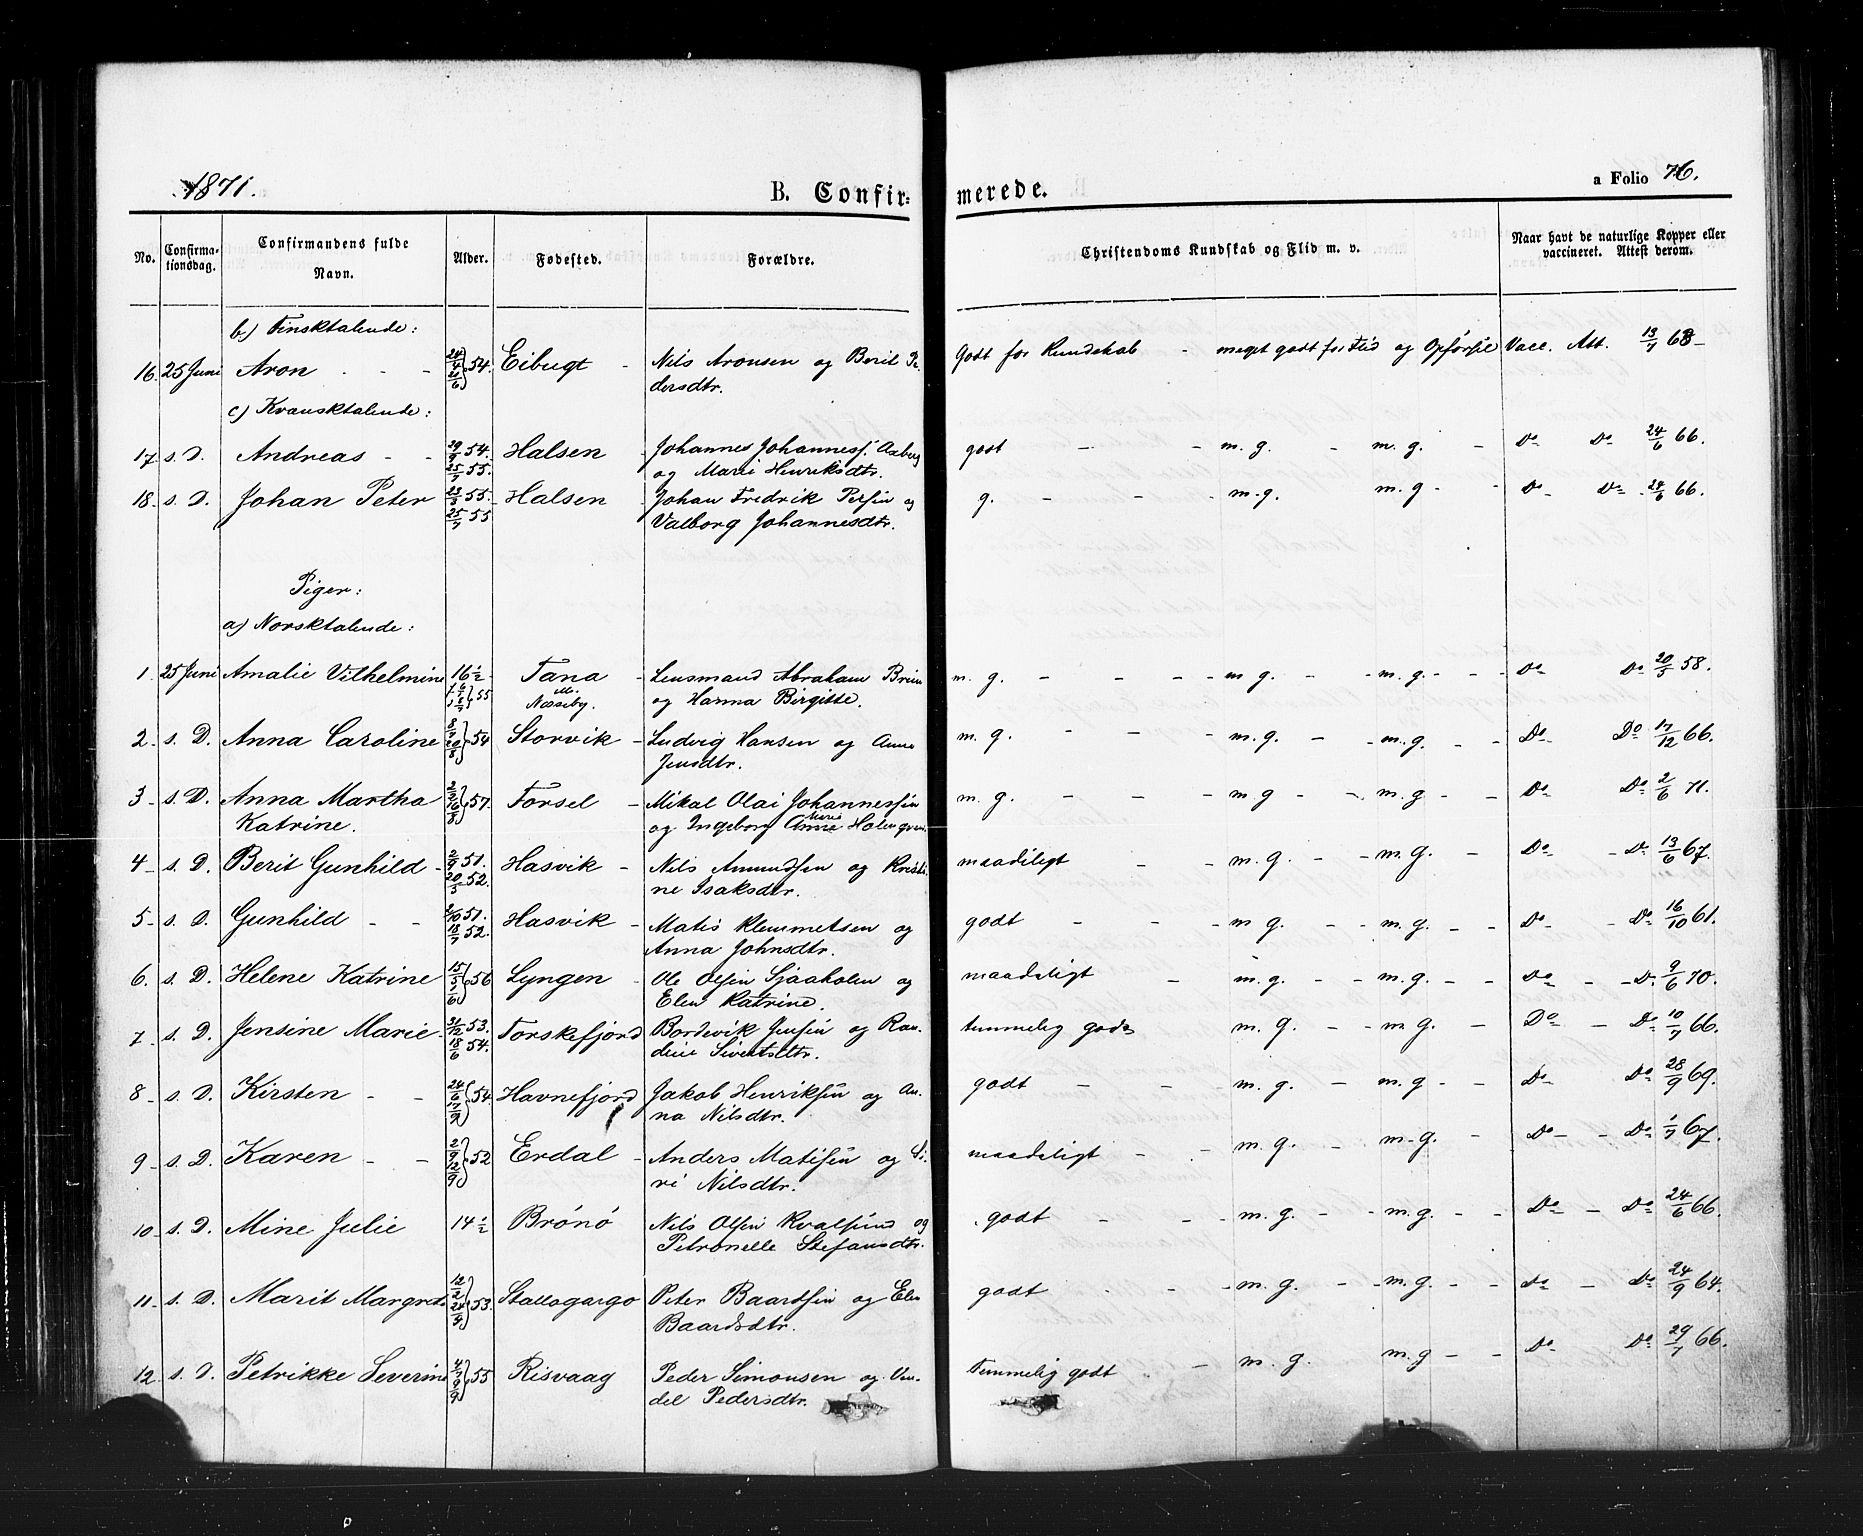 1871.
B. Confir=
merede.
a Folio 76.
No.
Confirma-
tionsdag.
Confirmandens fulde
Navn.
Alder.
Fødested.
Forældre.
Christendoms Kundskab og Flid m. v.
Naar havt de naturlige Kopper eller
vaccineret. Attest derom.
b) Finsktalende:
16. 25 Juni Aron - - 24/4 21/6 } 54. Eibugt - Nils Aronsen og Berit Pe- Godt for Kundskab - meget godt for Flid og Opførsel Vacc. Att. 13/7 68
dersdtr.
c) Kvænsktalende:
17. s. D. Andreas - - 29/9 54. Halsen - Johannes Johannesf. Aaberg godt - - m. g. - m. g. - Do Do 24/6 66.
25/7 55. og Marie Henriksdtr.
18. s. D. Johan Peter 23/3 55. Halsen - Johan Fredrik Persen og g. - - m. g. m. g - - Do Do 24/6 66.
25/7 55 Valborg Johannesdtr.
Piger:
a) Norsktalende:
1. 25 Juni Amalie Vilhelmine 16 1/2 Tana - Lensmand Abraham Brun m. g. - - - m g. - m. g. - - Do Do 20/5 58.
55 Næsseby. og Hanna Birgitte.
2. s. D. Anna Caroline 8/7 20/8 } 54 Storvik - Ludvig Hansen og Anne m. g. - - m. g. - m. g. - - Do Do 17/12 66.
Jensdtr.
3. s. D. Anna Martha 2/3 16/8 } 57. Forsel - Mikal Olai Johannessen m. g. - - - m g - - m. g - - Do Do 2/6 71.
Katrine. og Ingeborg Anna Marie
4. s. D. Berit Gunhild - 2/9 51. Hasvik - Nils Amundsen og Kristi- maadeligt - - m. g. - - m. g. - Do - Do 13/6 67.
20/5 52. ne Isaksdtr.
5. s. D. Gunhild - - 2/10 51. Hasvik - Matis Klemmetsen og godt - - - m. g. - - m. g. - - Do - Do 16/10 61.
18/7 52. Anna Johnsdtr.
6. s. D. Helene Katrine 15/5 1/6 } 56 Lyngen - Ole Olsen Sjaaholm og maadeligt - m. g. - - m. g. - - Do - - Do 9/6 70.
Elen Katrine.
7. s. D. Jensine Marie - 31/12 53. Torskefjord Bordevik Jensen og Ran- temmelig godt m. g. - - m. g. - Do - Do 10/7 66.
18/6 54. dine Sivertsdtr.
8. s. D. Kirsten - - 24/6 17/9 } 54. Havnefjord Jakob Henriksen og An- godt - - m. g. - m. g - - Do Do 28/9 69.
na Nilsdtr.
9. s. D. Karen - - 2/9 12/9 } 52 Erdal - Anders Matisen og Si- maadeligt - - m. g. - m. g. - Do - - Do 1/7 67.
ri Nilsdtr.
10. s. D. Mine Julie 14 1/2 Brønø Nils Olsen Kvalsund og godt - - m. g. - - m. g. - - Do - Do 24/6 66.
Petronelle Stefansdtr.
11. s. D. Marit Margrete 12/2 24/4 } 53. Stallogargo Peter Baardsen og Elen godt - - m. g. - - m. g. - - Do - Do 24/9 64.
Baardsdtr.
12. s. D. Petrikke Severine 4/3 9/9 } 55 Risvaag Peder Simonsen og Ven- temmelig godt - m. g. m. g - - Do Do 29/7 66.
del Pedersdtr.